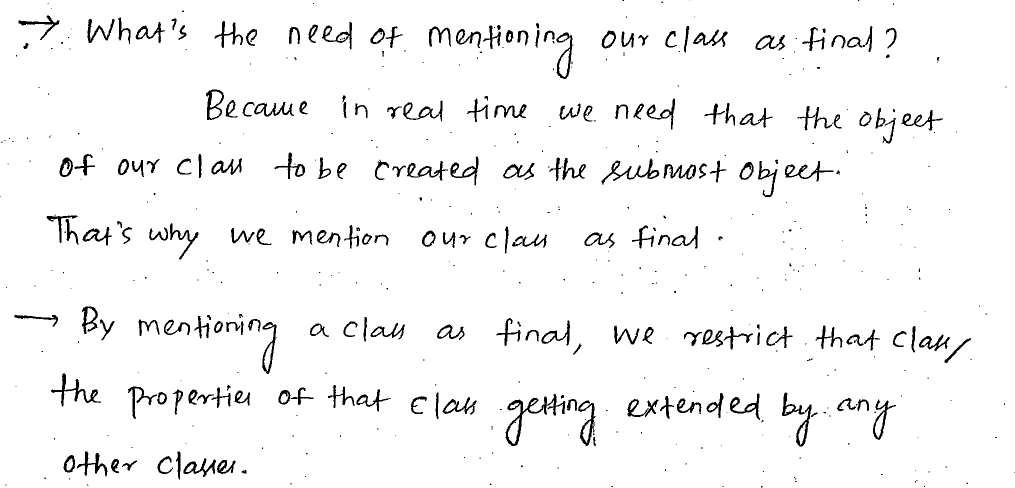 → What's the need of mentioning our class as final?
Because in real time we need that the object
of our class to be created as the submost object.
That's why we mention our class as final.
→ By mentioning a class as final, we restrict that class,
the properties of that class getting extended by any
other classes.